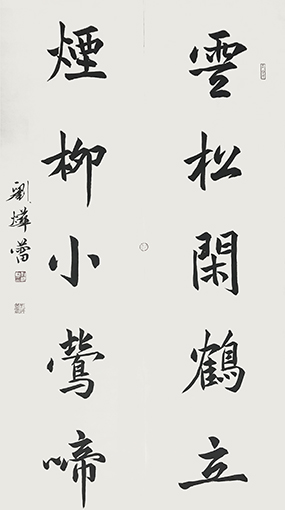 雲松閑鶴立
煙柳小鶯啼
劉燁蕾